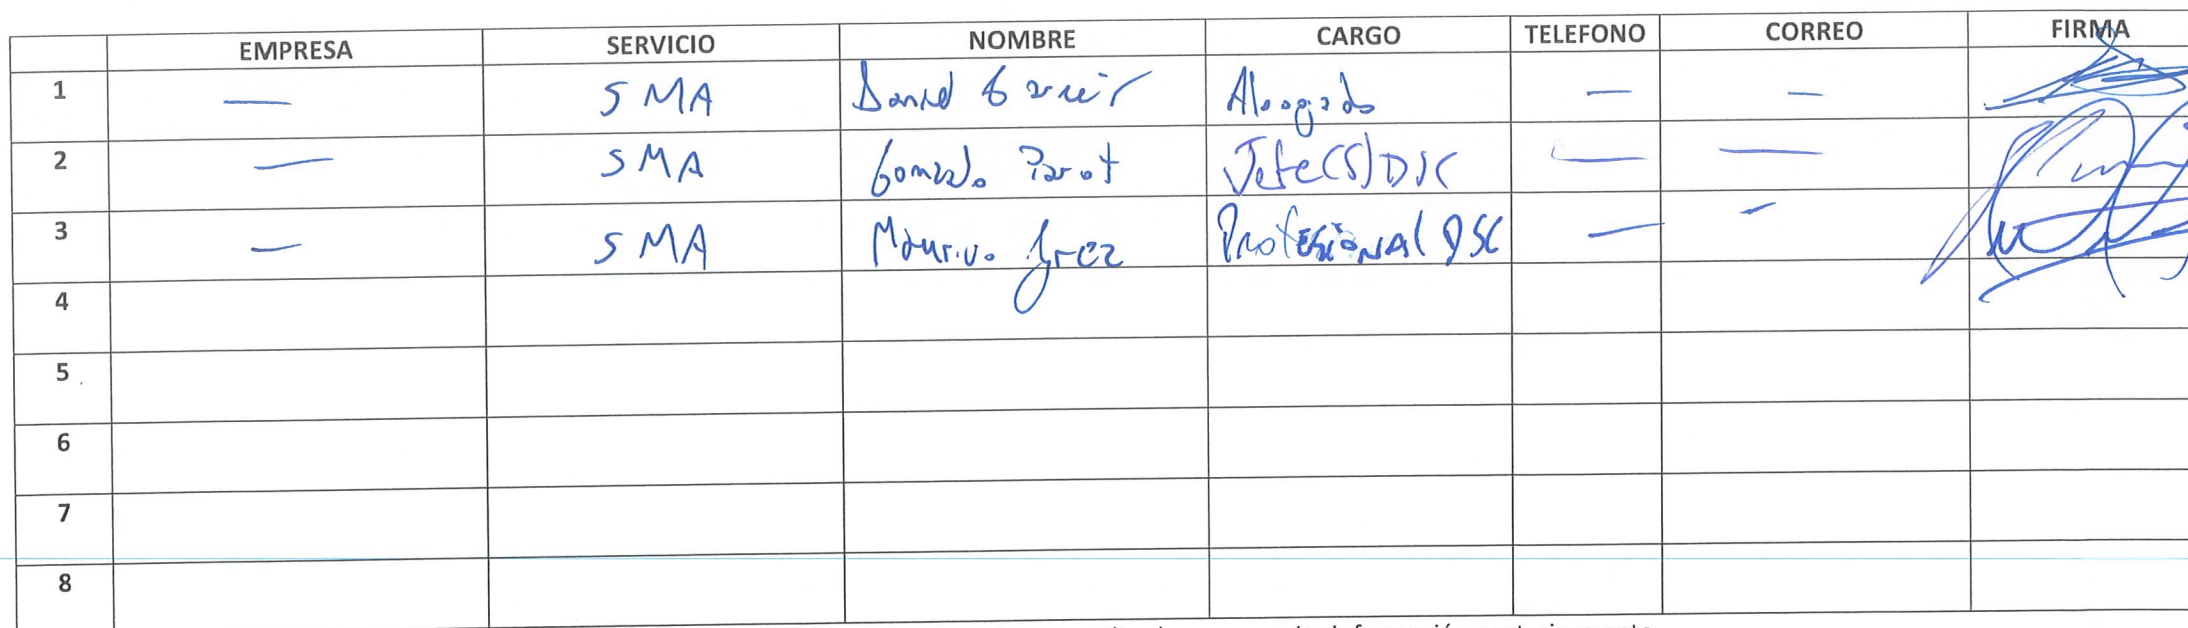 EMPRESA SERVICIO NOMBRE CARGO TELEFONO CORREO FIRMA
1 — SMA Daniel Garcés Abogado — —
2 — SMA Gonzalo Parot Jefe(S) DSC — —
3 — SMA Mauricio Grez Profesional DSC — -
4
5
6
7
8